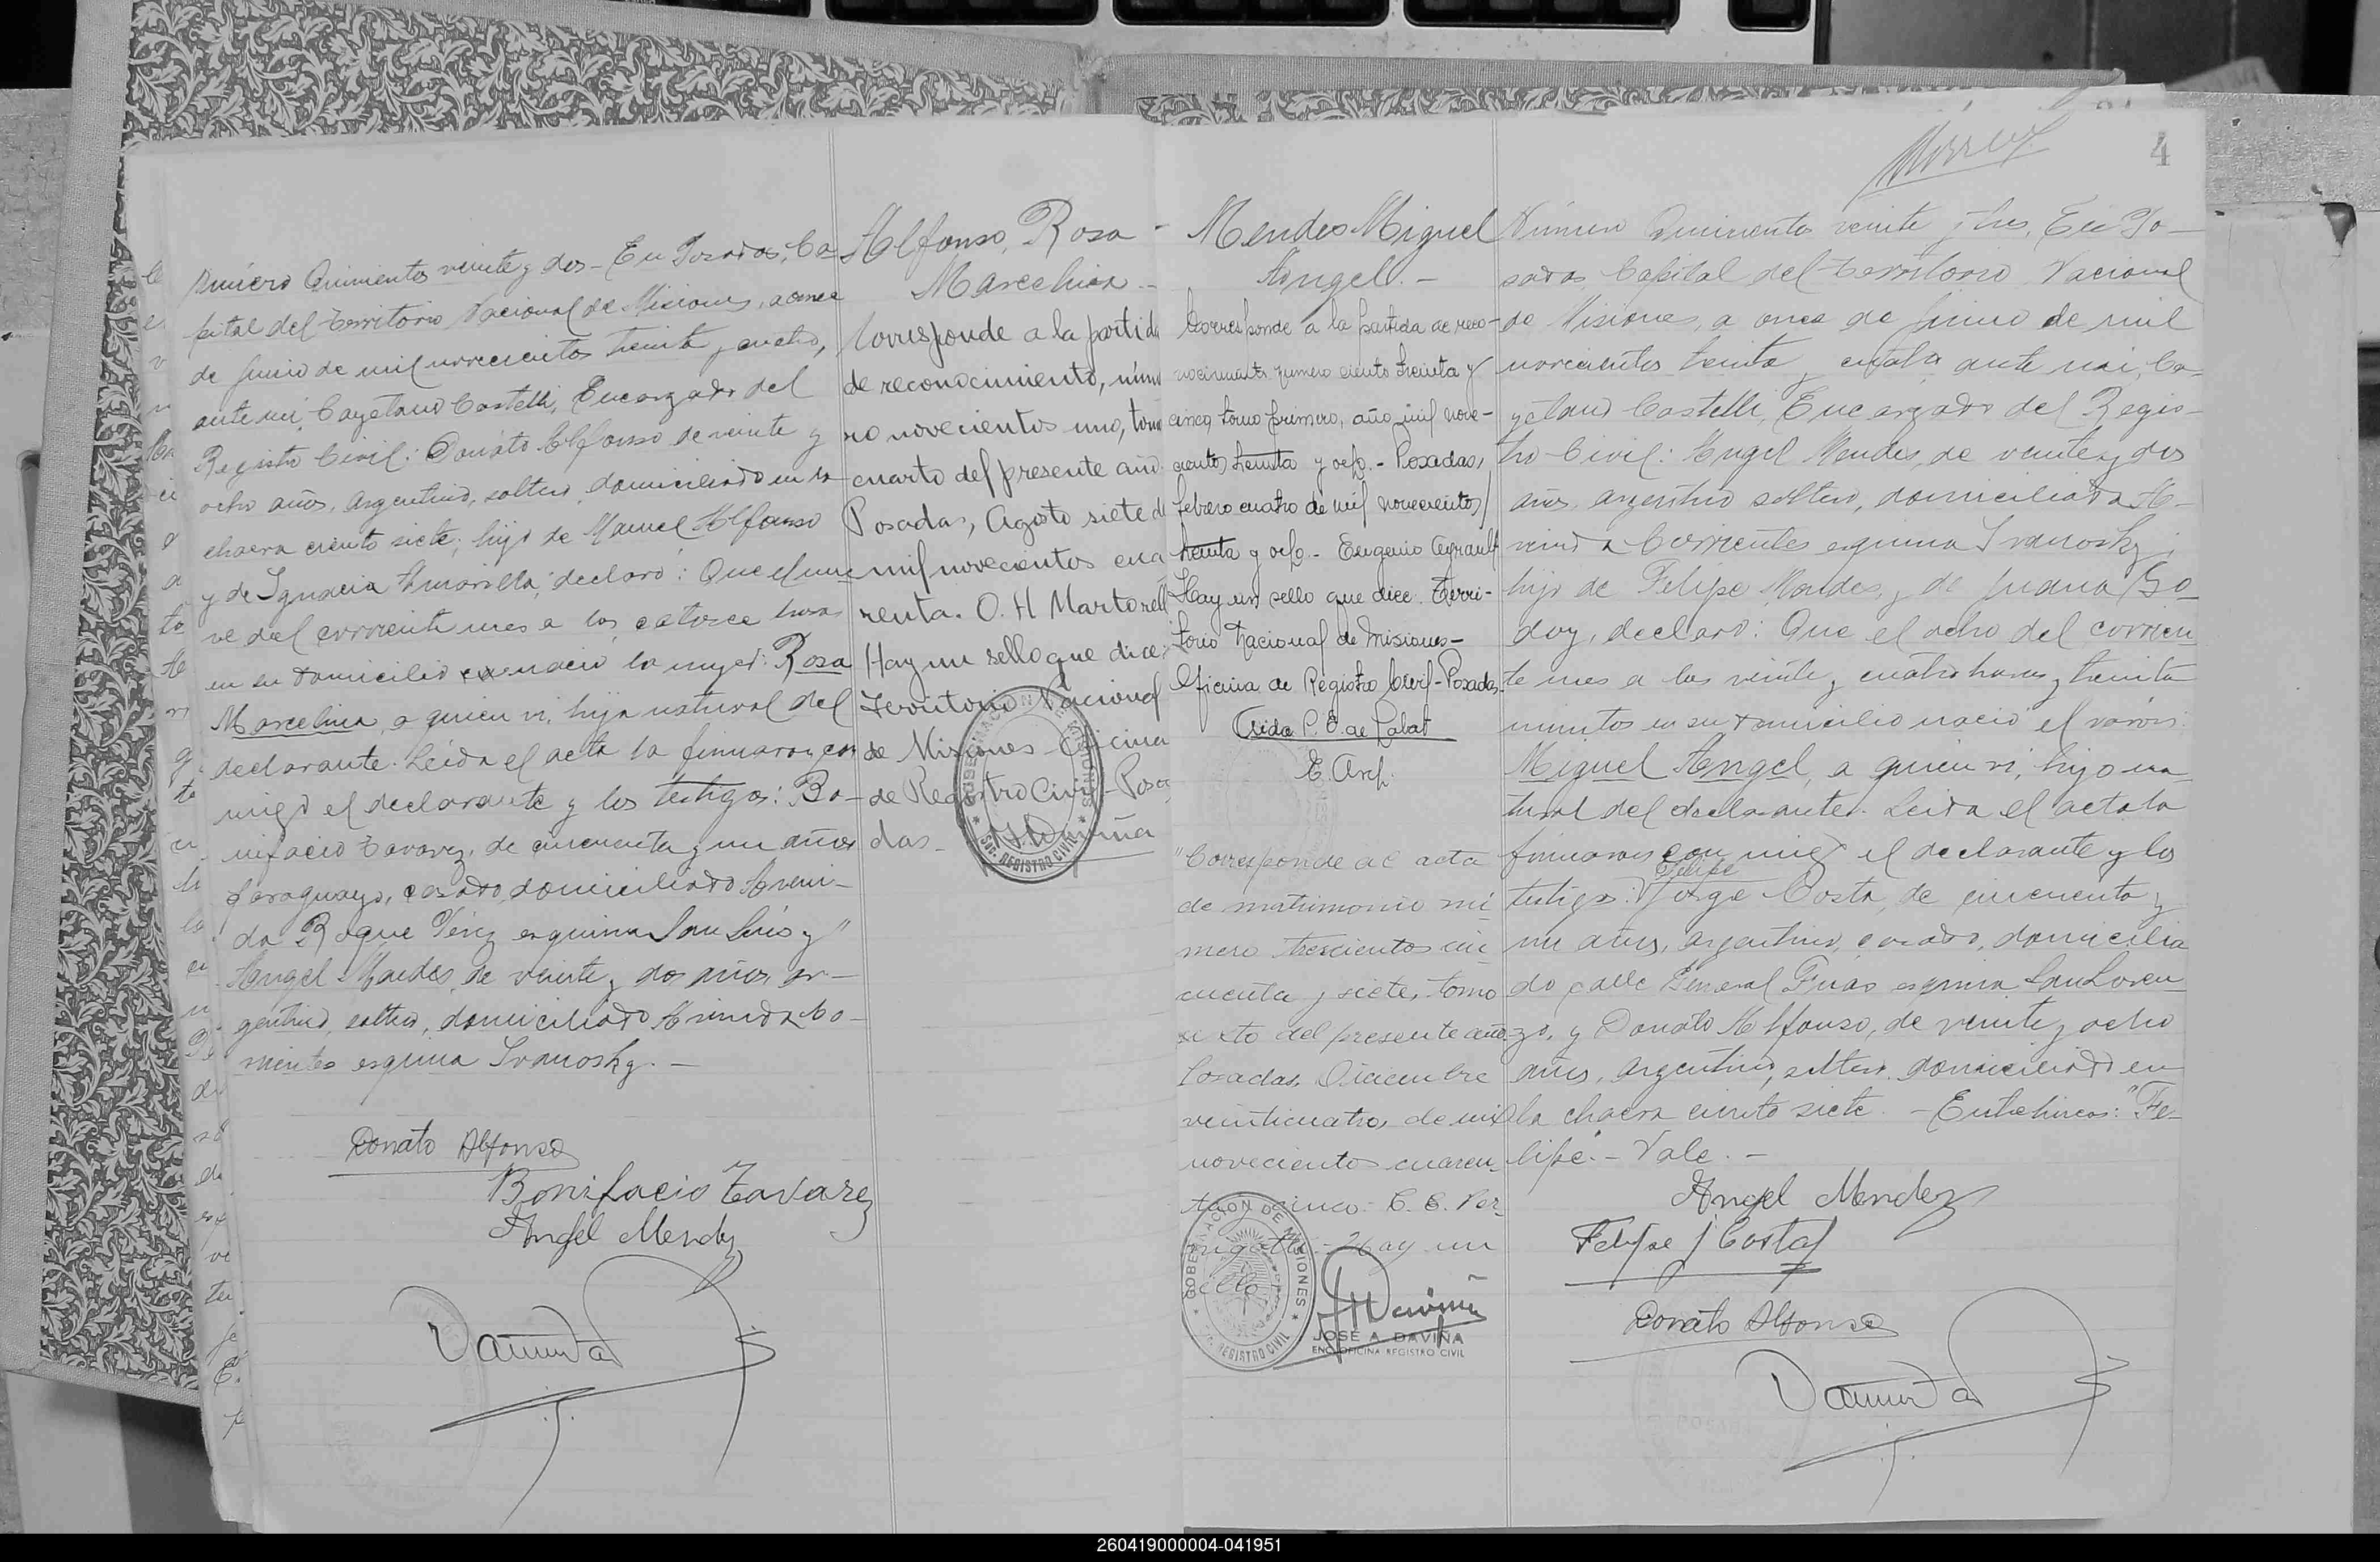 Número Quinientos veinte y dos - En Posadas, Ca-
pital del Territorio Nacional de Misiones, a once
de Junio de mil novecientos treinta y cuatro,
ante mí, Cayetano Castelli, Encargado del
Registro Civil: Donato Alfonso de veinte y
ocho años, argentino, soltero, domiciliado en la
chacra ciento siete; hijo de Manuel Alfonso
y de Ignacia Amarilla, declaró: Que el nue
ve del corriente mes a las catorce horas
en su domicilio nació la mujer: Rosa
Marcelina, a quien vi, hija natural del
declarante. Leída el acta la firmaron con
migo el declarante y los testigos: Bo-
nifacio Tavarez, de cincuenta y un años
paraguayo, casado, domiciliado Aveni-
da Roque Pérez esquina San Luis y
Angel Mendes, de veinte y dos años, ar-
gentino, soltero, domiciliado Avenida Co-
rrientes esquina Ivanosky. -
Donato Alfonso
Bonifacio Tavarez
Angel Mendez
Alfonso, Rosa
Marcelina -
Corresponde a la partida
de reconocimiento, núme
ro novecientos uno, tomo
cuarto del presente año.
Posadas, Agosto siete de
mil novecientos cua
renta. O. H. Martorell
Hay un sello que dice:
Territorio Nacional
de Misiones - Oficina
de Registro Civil - Posa
das -
GOBERNACION DE MISIONES
REGISTRO CIVIL
4
Mendes Miguel
Angel. -
Corresponde a la partida de reco-
nocimiento número ciento treinta y
cinco, tomo primero, año mil nove-
cientos treinta y ocho. - Posadas,
febrero cuatro de mil novecientos
treinta y ocho. - Eugenio
Hay un sello que dice: Terri-
torio Nacional de Misiones -
Oficina de Registro Civil - Posadas.
"Corresponde al acta
de matrimonio nú-
mero trescientos cin
cuenta y siete, tomo
sexto del presente año.
Posadas, Diciembre
veinticuatro, de mil
novecientos cuaren-
ta y cinco. -
Hay un
sello
GOBERNACION DE MISIONES
REGISTRO CIVIL
JOSÉ A. DAVIÑA
ENC. OFICINA REGISTRO CIVIL
Número Quinientos veinte y tres, En Po-
sadas, Capital del Territorio Nacional
de Misiones, a once de Junio de mil
novecientos treinta y cuatro, ante mí, Ca-
yetano Castelli, Encargado del Regis-
tro Civil: Angel Mendes, de veinte y dos
años, argentino soltero, domiciliado A-
venida Corrientes esquina Ivanosky;
hijo de Felipe Mendes, y de Juana Go
doy, declaró: Que el ocho del corrien
te mes a las veinte y cuatro horas y treinta
minutos en su domicilio nació el varón:
Miguel Angel, a quien vi, hijo na
tural del declarante. Leída el acta la
firmaron con migo el declarante y los
Felipe
testigos: Jorge Costa, de cincuenta y
un años, argentino, casado, domicilia
do calle General Frias esquina San Loren
zo, y Donato Alfonso, de veinte y ocho
años, argentino, soltero, domiciliado en
la chacra ciento siete. - Entrelineas: "Fe-
lipe". - Vale. -
Angel Mendez
Felipe J Costa
Donato Alfonso
260419000004-041951